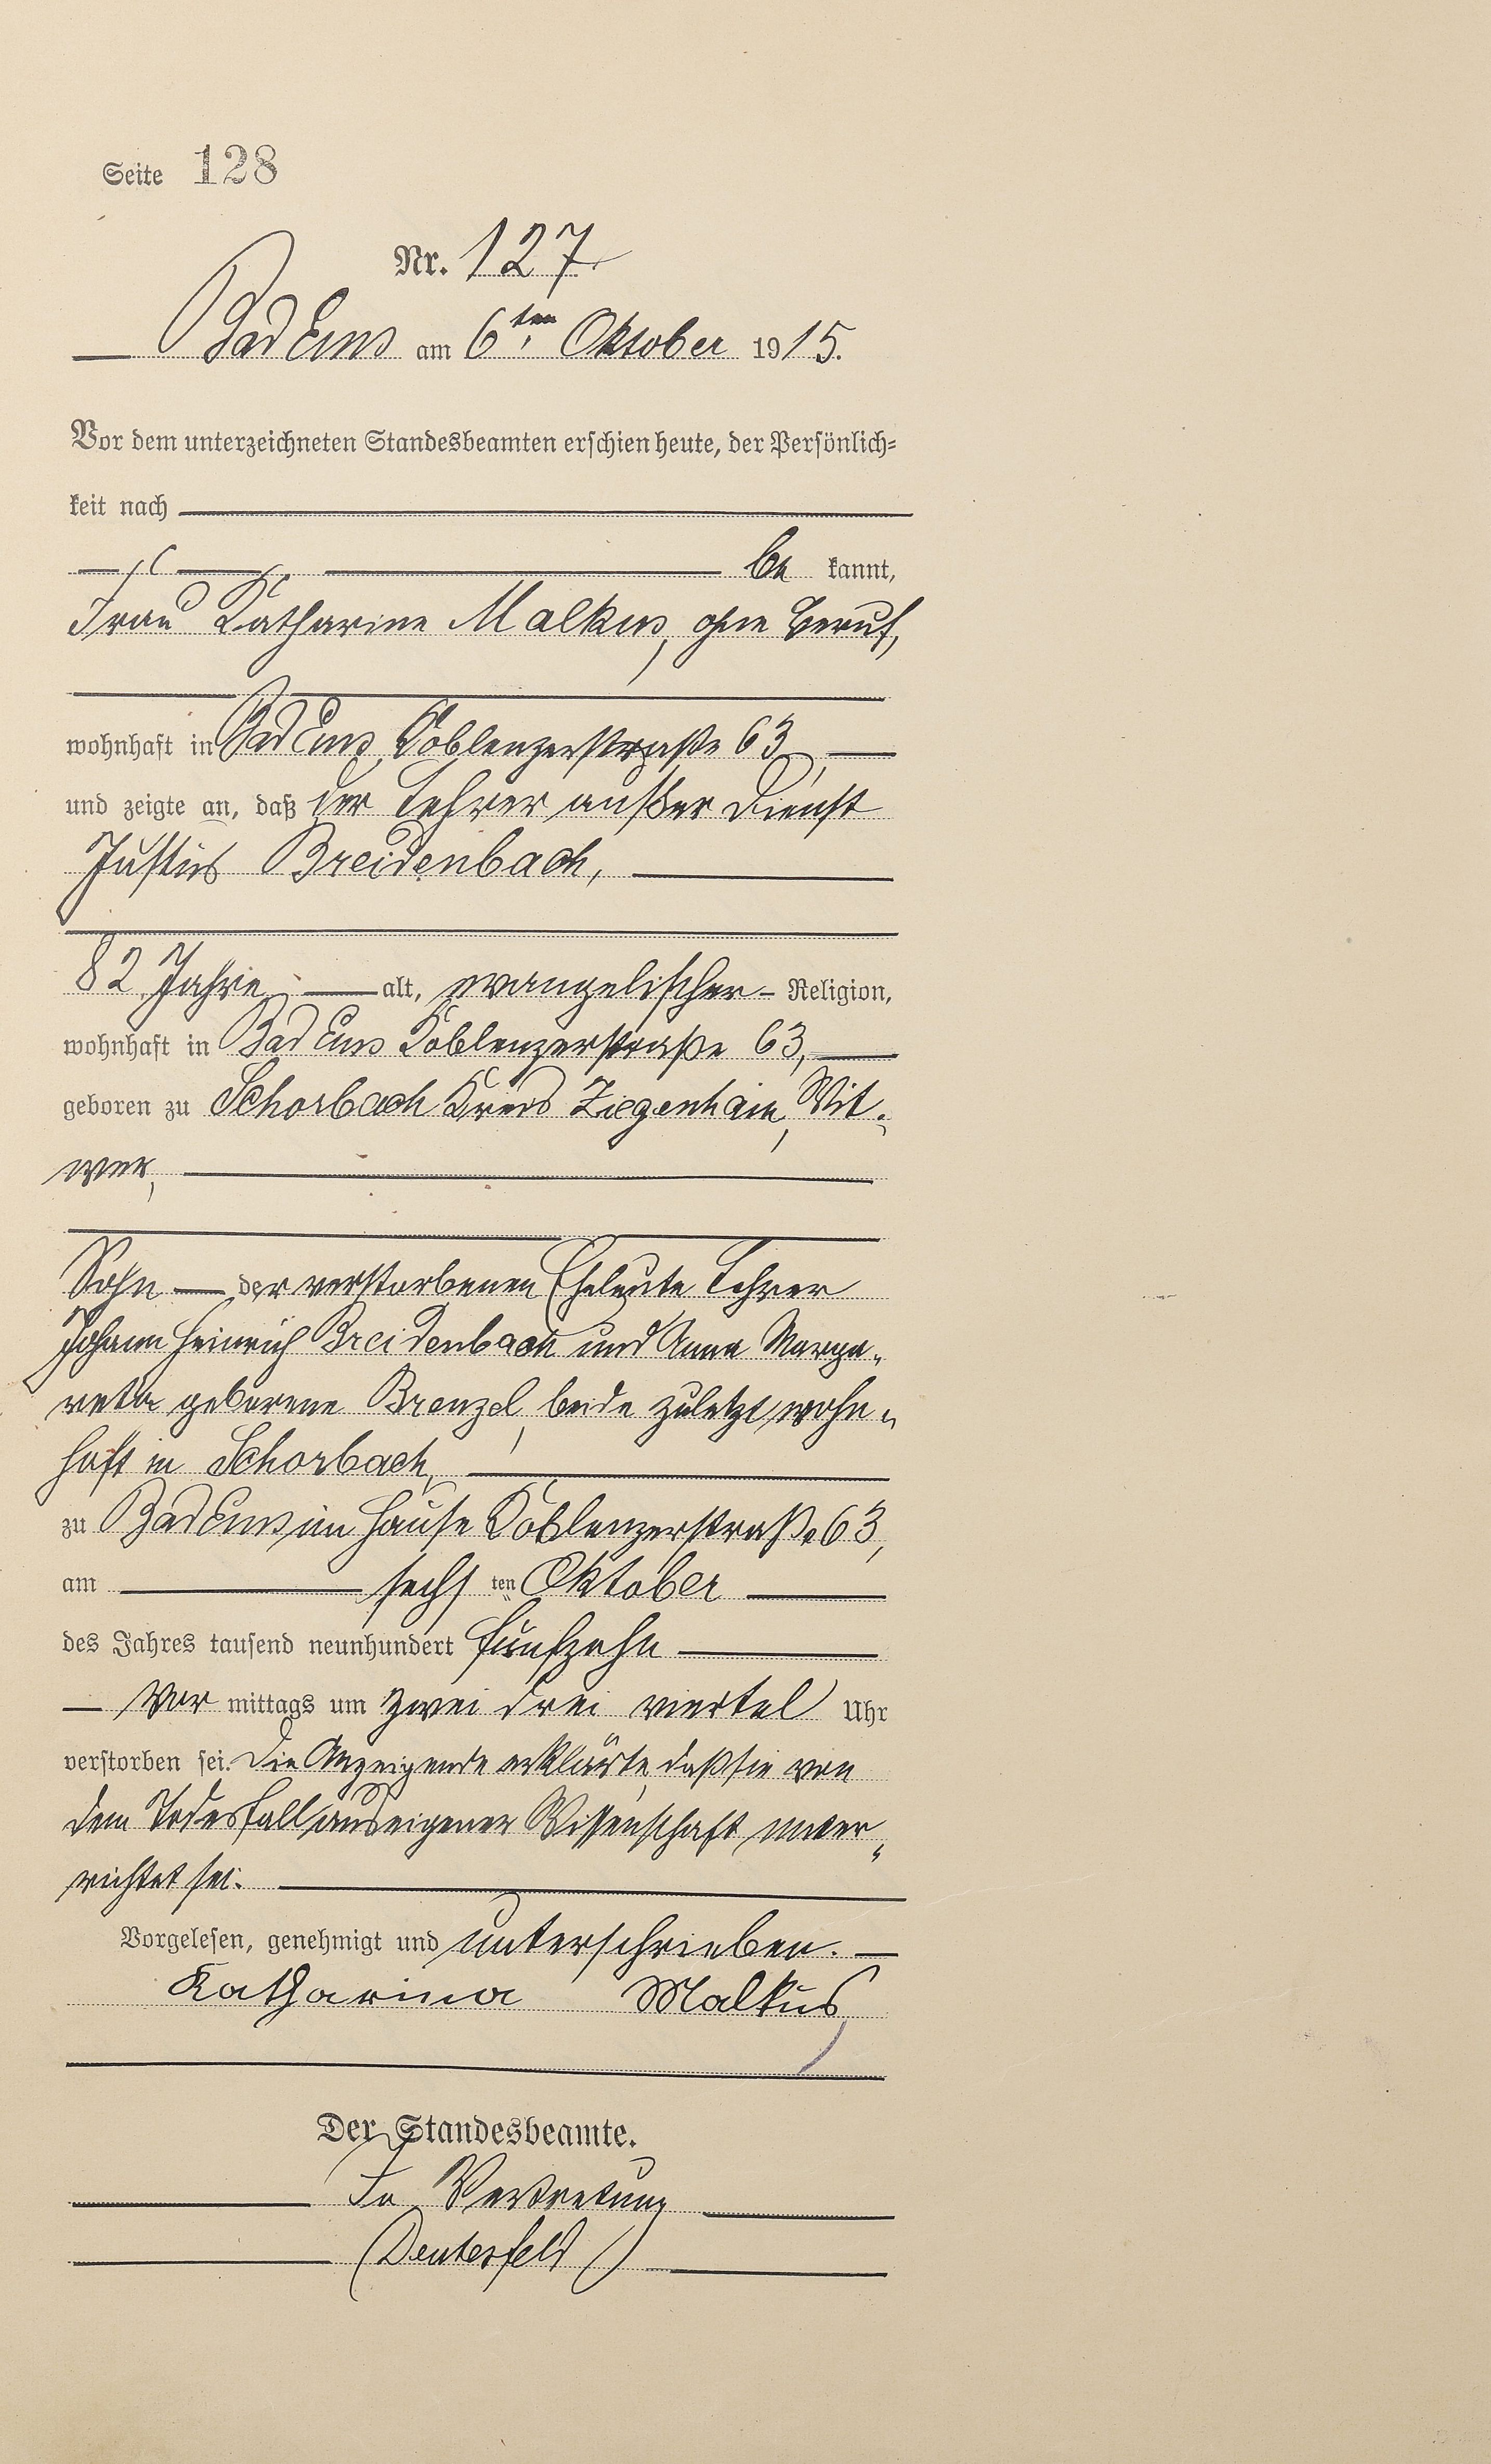 Seite 128
Nr. 127
Bad Ems am 6ten Oktober 1915.
Vor dem unterzeichneten Standesbeamten erschien heute, der Persönlich-
keit nach
be kannt,
Frau Katharine Malkus, ohne Beruf,
wohnhaft in Bad Ems, Koblenzerstraße 63,
und zeigte an, daß der Lehrer außer Dienst
Justus Breidenbach,
82 Jahre alt, evangelischer Religion,
wohnhaft in Bad Ems Koblenzerstraße 63,
geboren zu Schorbach Kreis Ziegenhain, Wit-
wer,
Sohn der verstorbenen Eheleute Lehrer
Johann Heinrich Breidenbach und Anna Marga-
reta geborene Brenzel, beide zuletzt wohn-
haft in Schorbach,
zu Bad Ems im Hause Koblenzerstraße 63,
am sechs ten Oktober
des Jahres tausend neunhundert fünfzehn
Vor mittags um zwei drei viertel Uhr
verstorben sei. Die Anzeigende erklärte, daß sie von
dem Todesfall aus eigener Wissenschaft unter-
richtet sei.
Vorgelesen, genehmigt und unterschrieben.
Katharina Malkus
Der Standesbeamte.
In Vertretung
(Deutesfeld)